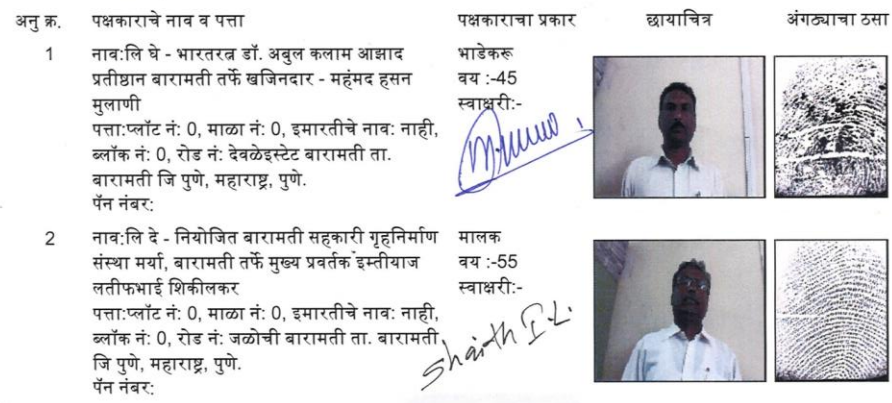 अनु क्र. पक्षकाराचे नाव व पत्ता पक्षकाराचा प्रकार छायाचित्र अंगठ्याचा ठसा
1 नाव:लि घे - भारतरत्न डॉ. अबुल कलाम आझाद
प्रतीष्ठान बारामती तर्फे खजिनदार - महंमद हसन
मुलाणी
पत्ता:प्लॉट नं: 0, माळा नं: 0, इमारतीचे नाव: नाही,
ब्लॉक नं: 0, रोड नं: देवळेइस्टेट बारामती ता.
बारामती जि पुणे, महाराष्ट्र, पुणे.
पॅन नंबर:
भाडेकरू
वय :-45
स्वाक्षरी:-
2 नाव:लि दे - नियोजित बारामती सहकारी गृहनिर्माण
संस्था मर्या, बारामती तर्फे मुख्य प्रवर्तक इम्तीयाज
लतीफभाई शिकीलकर
पत्ता:प्लॉट नं: 0, माळा नं: 0, इमारतीचे नाव: नाही,
ब्लॉक नं: 0, रोड नं: जळोची बारामती ता. बारामती
जि पुणे, महाराष्ट्र, पुणे.
पॅन नंबर:
मालक
वय :-55
स्वाक्षरी:-